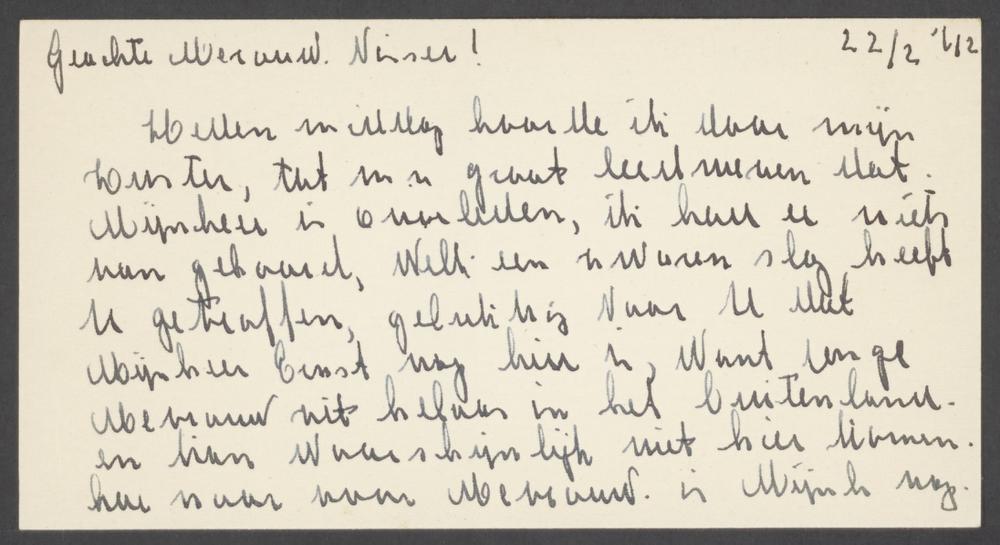 Geachte Mevrouw. Visser! 22/2 '42
Heden middag hoorde ik door mijn
zuster, tot m.n groot leedwezen dat.
Mijnheer is overleden, ik had er niets
van gehoord, Welk een zwaren slag heeft
U getroffen, gelukkig voor U dat
Mijnheer Ernst nog hier is, Want jonge
Mevrouw zit helaas in het buitenland.
en kan Waarschijnlijk niet hier komen.
hoe naar voor Mevrouw. is Mijnh nog.